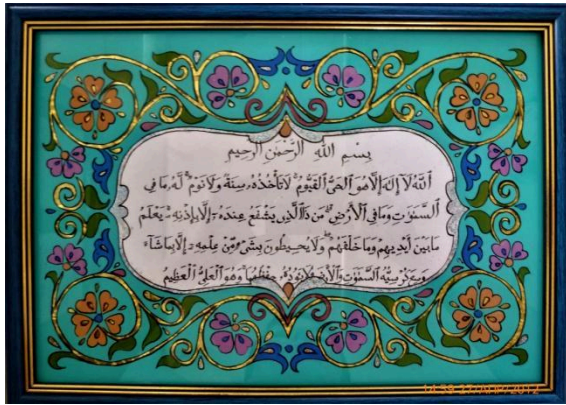 بِسْمِ اللَّهِ الرَّحْمَٰنِ الرَّحِيمِ
اللَّهُ لَا إِلَٰهَ إِلَّا هُوَ الْحَيُّ الْقَيُّومُ لَا تَأْخُذُهُ سِنَةٌ وَلَا نَوْمٌ لَهُ مَا فِي
السَّمَٰوَٰتِ وَمَا فِي الْأَرْضِ مَنْ ذَا الَّذِي يَشْفَعُ عِنْدَهُ إِلَّا بِإِذْنِهِ يَعْلَمُ
مَا بَيْنَ أَيْدِيهِمْ وَمَا خَلْفَهُمْ وَلَا يُحِيطُونَ بِشَيْءٍ مِنْ عِلْمِهِ إِلَّا بِمَا شَاءَ
وَسِعَ كُرْسِيُّهُ السَّمَٰوَٰتِ وَالْأَرْضَ وَلَا يَئُودُهُ حِفْظُهُمَا وَهُوَ الْعَلِيُّ الْعَظِيمُ